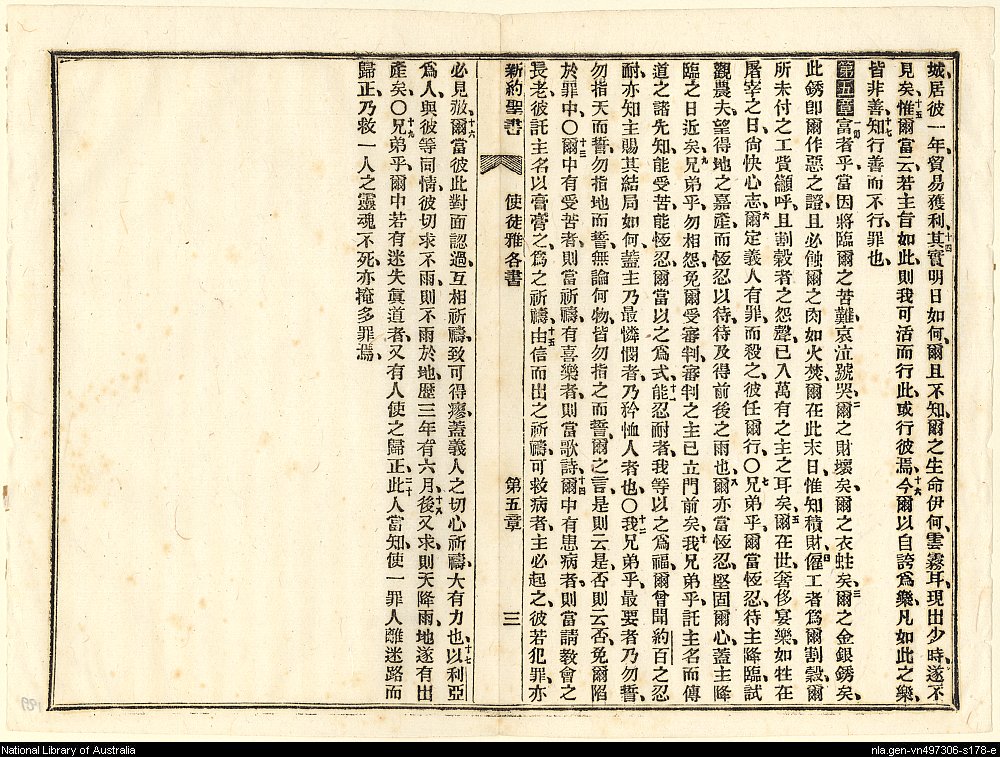 城、居彼一年、貿易獲利、十四其實明日如何、爾且不知、爾之生命伊何、雲霧耳、現出少時、遂不
見矣、十五惟爾當云、若主旨如此、則我可活而行此、或行彼焉、十六今爾以自誇爲樂、凡如此之樂、
皆非善、十七知行善而不行、罪也、
第五章 一節富者乎、當因將臨爾之苦難、哀泣號哭、二爾之財壞矣、爾之衣蛀矣、三爾之金銀銹矣、
此銹卽爾作惡之證、且必蝕爾之肉如火焚、爾在此末日、惟知積財、四傭工者爲爾割穀、爾
所未付之工貲籲呼、且割穀者之怨聲、已入萬有之主之耳矣、五爾在世奢侈宴樂、如牲在
屠宰之日、尙快心志、六爾定義人有罪而殺之、彼任爾行、〇七兄弟乎、爾當恆忍、待主降臨、試
觀農夫、望得地之嘉產、而恆忍以待、待及得前後之雨也、八爾亦當恆忍、堅固爾心、蓋主降
臨之日近矣、九兄弟乎、勿相怨、免爾受審判、審判之主、已立門前矣、十我兄弟乎、託主名而傳
道之諸先知、能受苦、能恆忍、爾當以之爲式、十一能忍耐者、我等以之爲福、爾曾聞約百之忍
耐、亦知主賜其結局如何、蓋主乃最憐憫者、乃矜恤人者也、〇十二我兄弟乎、最要者乃勿誓、
勿指天而誓、勿指地而誓、無論何物、皆勿指之而誓、爾之言、是則云是、否則云否、免爾陷
於罪中、〇十三爾中有受苦者、則當祈禱、有喜樂者、則當歌詩、十四爾中有患病者、則當請教會之
長老、彼託主名、以膏膏之、爲之祈禱、十五由信而出之祈禱、可救病者、主必起之、彼若犯罪、亦
新約聖書 使徒雅各書 第五章 三
必見赦、十六爾當彼此對面認過、互相祈禱、致可得瘳、蓋義人之切心祈禱、大有力也、十七以利亞
爲人、與彼等同情、彼切求不雨、則不雨於地、歷三年有六月、十八後又求、則天降雨、地遂有出
產矣、〇十九兄弟乎、爾中若有迷失眞道者、又有人使之歸正、二十此人當知、使一罪人離迷路而
歸正、乃救一人之靈魂不死、亦掩多罪焉、
National Library of Australia
nla.gen-vn497306-s178-e